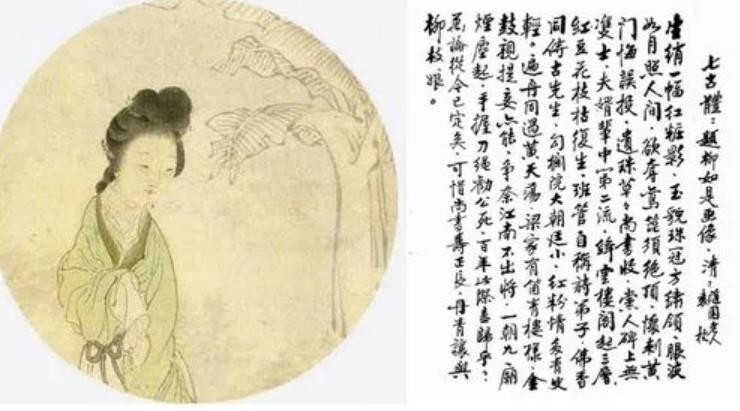 七古體:題柳如是畫像。清:隨園老人
袁枚
生綃一幅紅粧影,玉貌珠冠方繡領,眼波
如月照人間,欲奪鸞篦須絕頂,懷刺黃
門悔誤投,遺珠草々尚書收,黨人碑上無
雙士,夫婿輩中第二流,絳雲樓閣起三層,
紅豆花枝枯復生,班管自稱詩弟子,佛香
同倚古先生,勾欄院大朝廷小,紅粉情多青史
輕。遍舟同過黃天蕩,梁家有個青樓樣,金
鼓親提妾亦能,爭奈江南不出將,一朝九廟
煙塵起,手握刀繩勸公死,百年此際盍歸乎?
萬論從今已定矣,可惜尚書壽正長,丹青讓與
柳枝娘。